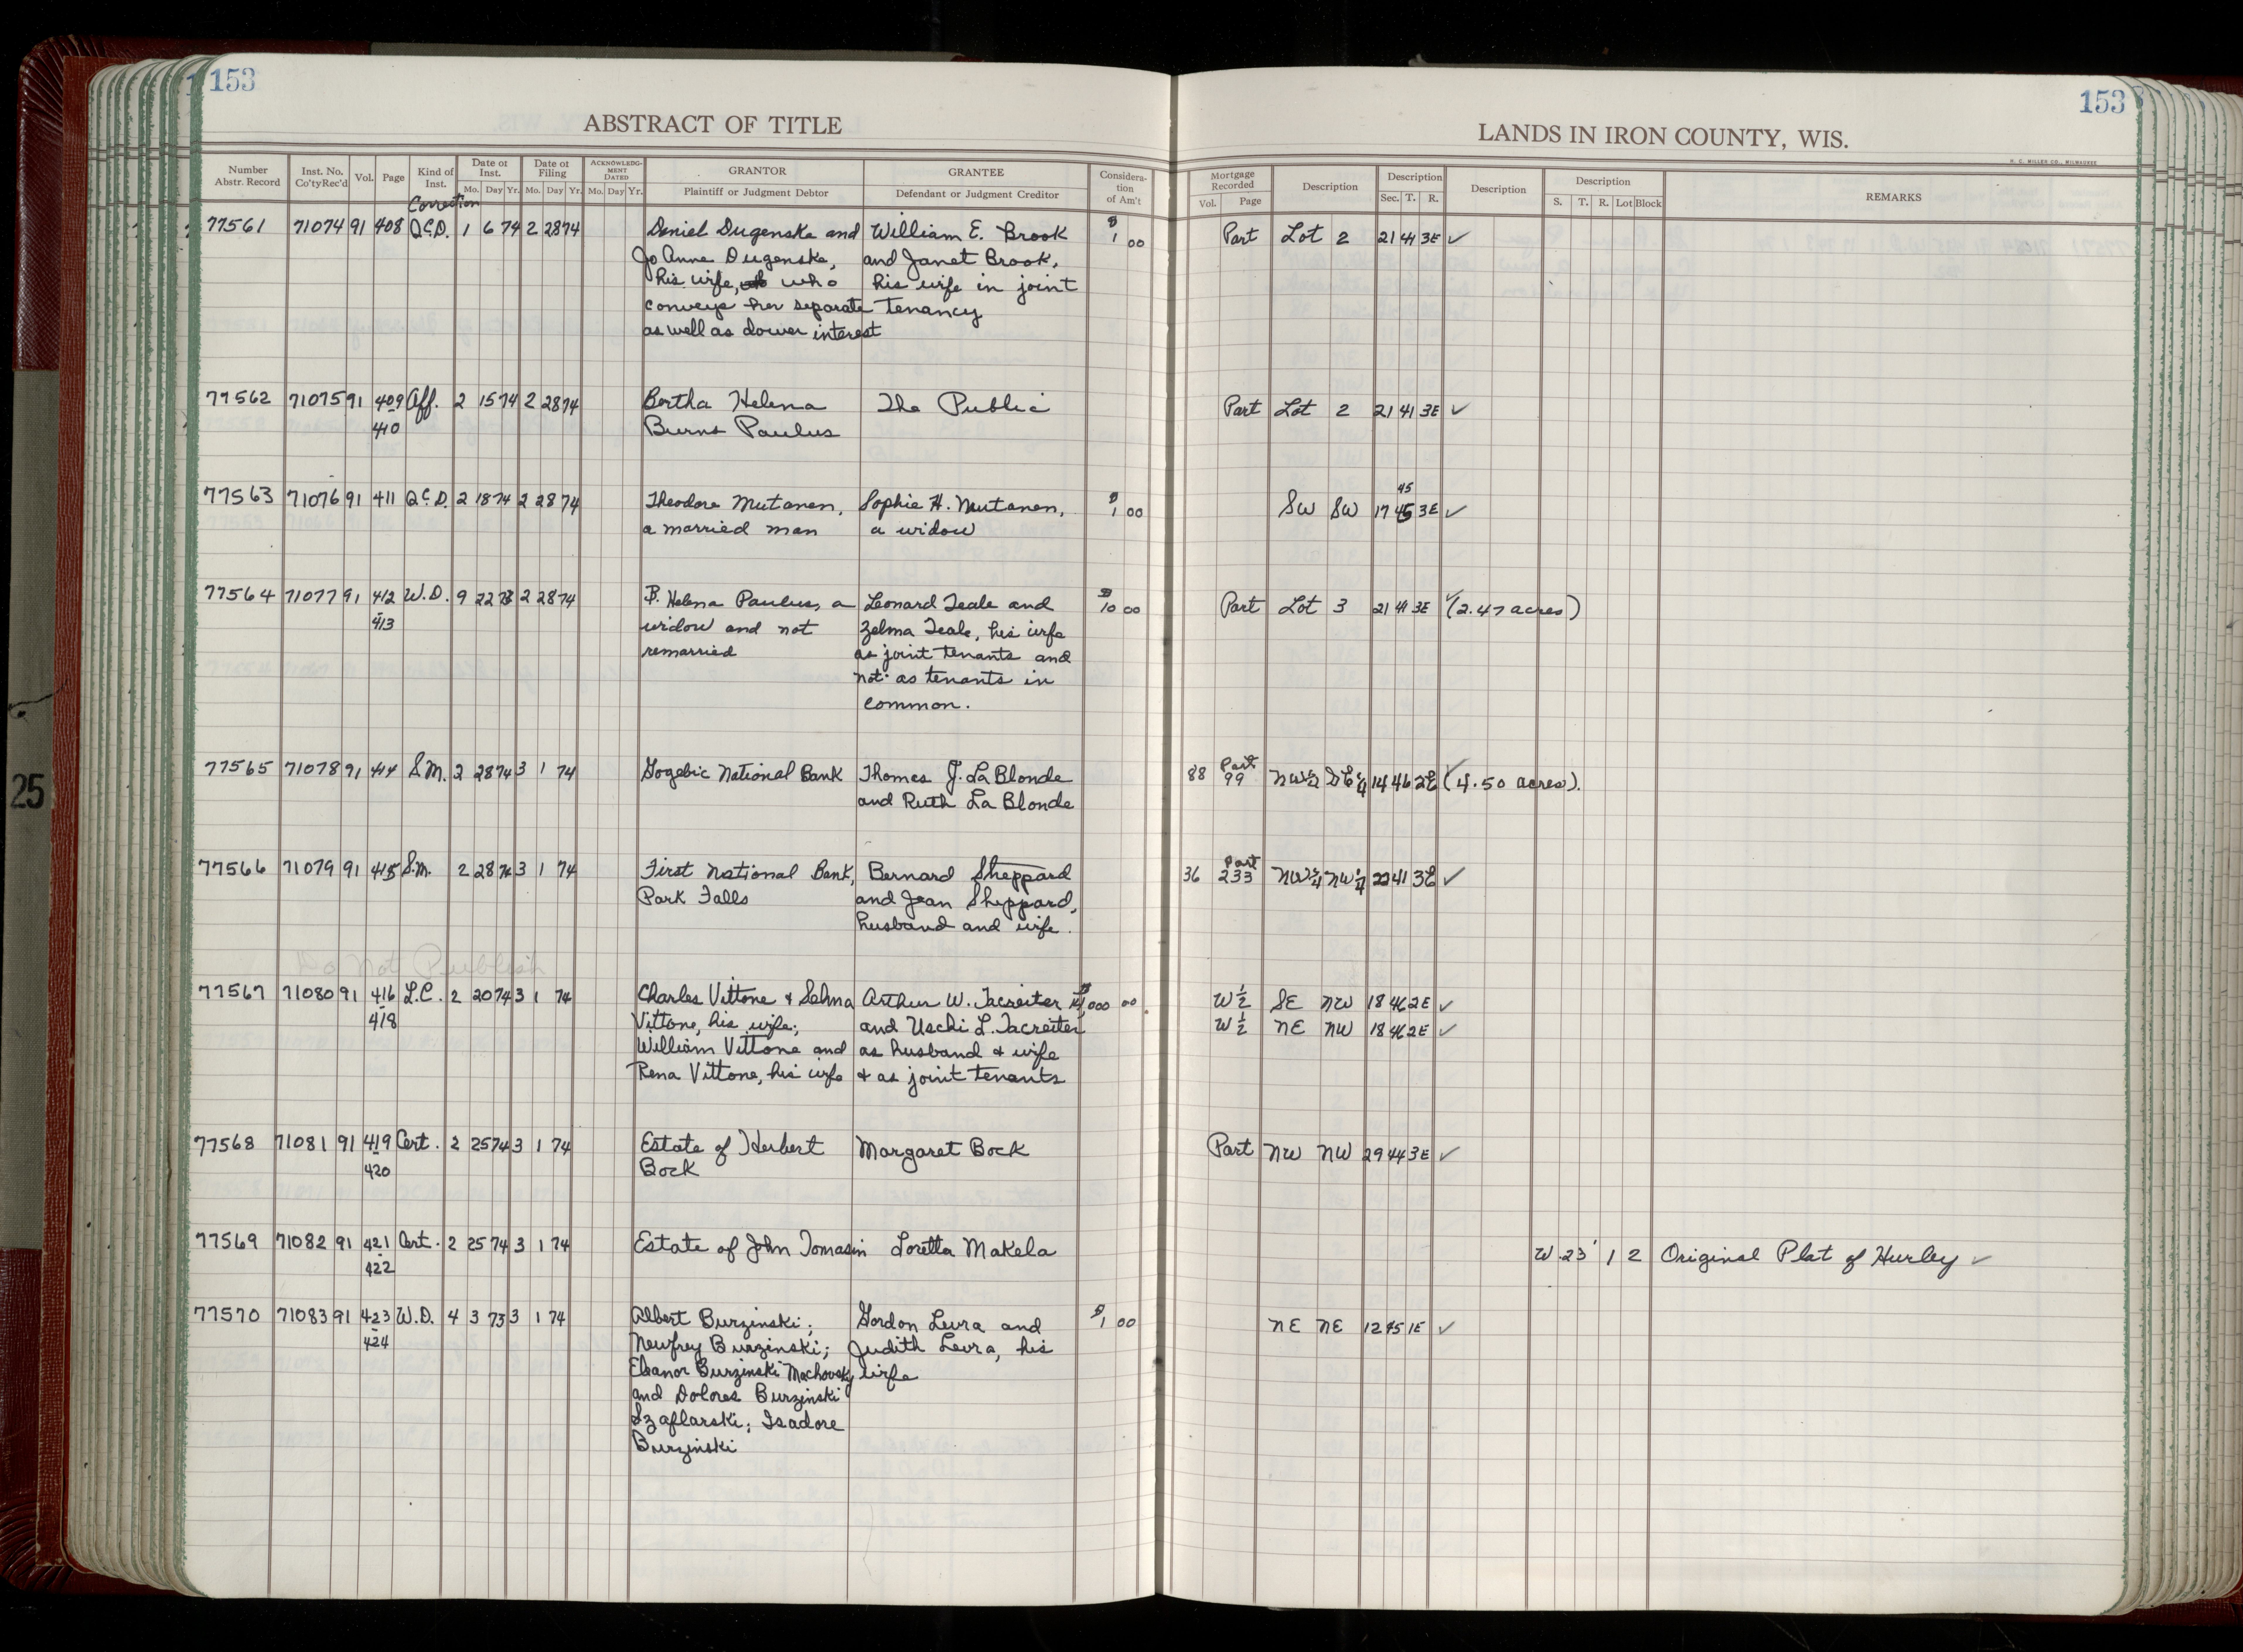 153
153
ABSTRACT OF TITLE
LANDS IN IRON COUNTY, WIS.
H. C. MILLER CO., MILWAUKEE
Number Abstr. Record | Inst. No. Co'ty Rec'd | Vol. | Page | Kind of Inst. | Date of Inst. Mo. Day Yr. | Date of Filing Mo. Day Yr. | ACKNOWLEDGMENT DATED Mo. Day Yr. | GRANTOR Plaintiff or Judgment Debtor | GRANTEE Defendant or Judgment Creditor | Consideration of Am't | Mortgage Recorded Vol. Page | Description | Description Sec. T. R. | Description | Description S. T. R. Lot Block | REMARKS
Correction
77561 71074 91 408 Q.C.D. 1 6 74 2 28 74 Daniel Dugenske and William E. Brook $1 00 Part Lot 2 21 41 3E ✓
Jo Anne Dugenske, and Janet Brook,
his wife, who his wife in joint
conveys her separate tenancy
as well as dower interest
77562 71075 91 409 Aff. 2 15 74 2 28 74 Bertha Helena The Public Part Lot 2 21 41 3E ✓
410 Burns Paulus
45
77563 71076 91 411 Q.C.D. 2 18 74 2 28 74 Theodore Mutanen, Sophie H. Mutanen, $1 00 SW SW 17 45 3E ✓
a married man a widow
77564 71077 91 412 W.D. 9 22 73 2 28 74 B. Helena Paulus, a Leonard Teale and $10 00 Part Lot 3 21 41 3E ✓ (2.47 acres)
413 widow and not Zelma Teale, his wife
remarried as joint tenants and
not as tenants in
common.
77565 71078 91 414 S.M. 2 28 74 3 1 74 Gogebic National Bank Thomas J. La Blonde 88 Part 99 NW¼ SE¼ 14 46 2E ✓ (4.50 acres).
and Ruth La Blonde
77566 71079 91 415 S.M. 2 28 74 3 1 74 First National Bank, Bernard Sheppard 36 Part 233 NW¼ NW¼ 22 41 3E ✓
Park Falls and Jean Sheppard,
husband and wife.
Do Not Publish
77567 71080 91 416 L.C. 2 20 74 3 1 74 Charles Vittone & Selma Arthur W. Tacreiter 000 00 W½ SE NW 18 46 2E ✓
418 Vittone, his wife; and Uschi L. Tacreiter W½ NE NW 18 46 2E ✓
William Vittone and as husband & wife
Rena Vittone, his wife & as joint tenants
77568 71081 91 419 Cert. 2 25 74 3 1 74 Estate of Herbert Margaret Bock Part NW NW 29 44 3E ✓
420 Bock
77569 71082 91 421 Cert. 2 25 74 3 1 74 Estate of John Tomasin Loretta Makela W. 23' 1 2 Original Plat of Hurley ✓
422
77570 71083 91 423 W.D. 4 3 73 3 1 74 Albert Burzinski; Gordon Levra and $1 00 NE NE 12 45 1E ✓
424 Newfrey Burzinski; Judith Levra, his
Eleanor Burzinski Machovsky wife
and Dolores Burzinski
Szaflarski; Isadore
Burzinski
25